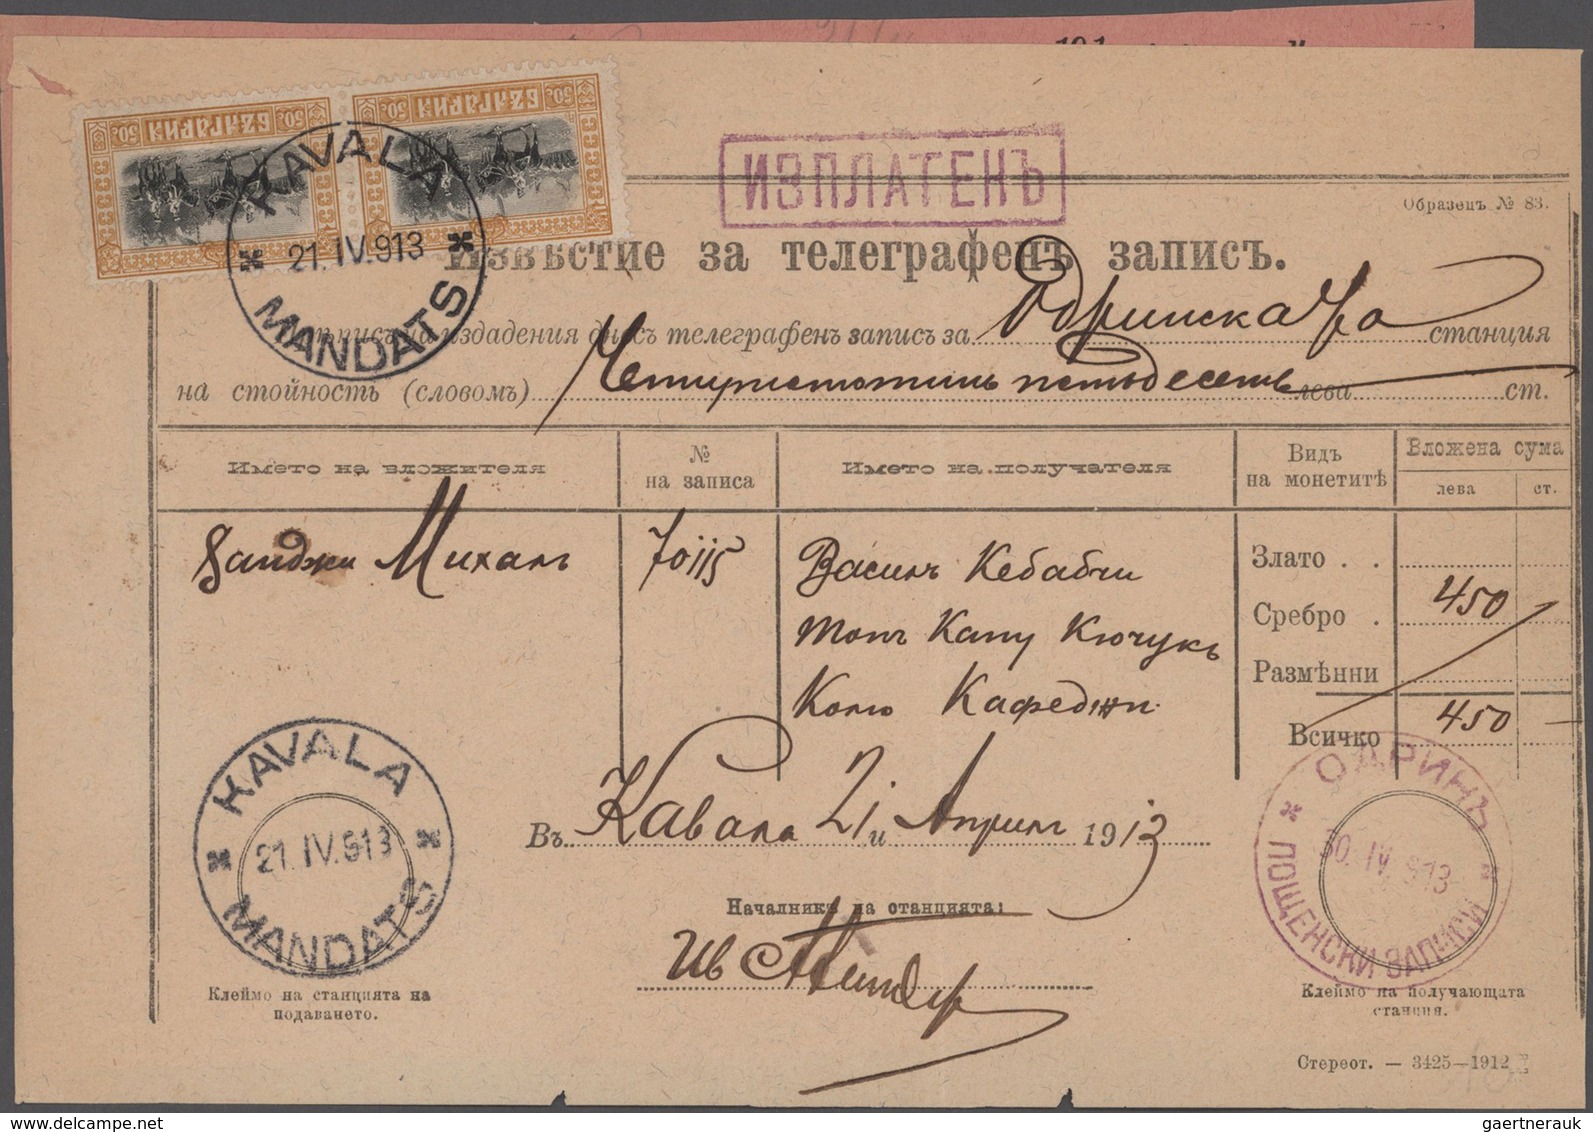 50. БЪЛГАРИЯ 50.
50. БЪЛГАРИЯ 50.
KAVALA
21.IV.913
MANDATS
ИЗПЛАТЕНЪ
Образецъ № 83.
Извѣстие за телеграфенъ запис.ъ.
издадения днесъ телеграфенъ записъ за Одринска станция
на стойность (словомъ) Четиристотинь петьдесеть лева ст.
Името на вложителя
№ на записа
Името на получателя
Видъ на монетитѣ
Вложена сума
лева ст.
Михаль
70115
Василь Кебабчи
Топъ Капу Кючукъ
Колю Кафеджи
Злато . .
Сребро . 450
Размѣнни
Всичко 450
Въ Кавала 21 и Априлъ 1913
Началникъ на станцията:
Ив
KAVALA
21.IV.913
MANDATS
Клеймо на станцията на
подаването.
ОДРИНЪ
30.IV.913
ПОЩЕНСКИ ЗАПИСИ
Клеймо на получающата
станция.
Стереот. — 3425—1912
gaertnerauk